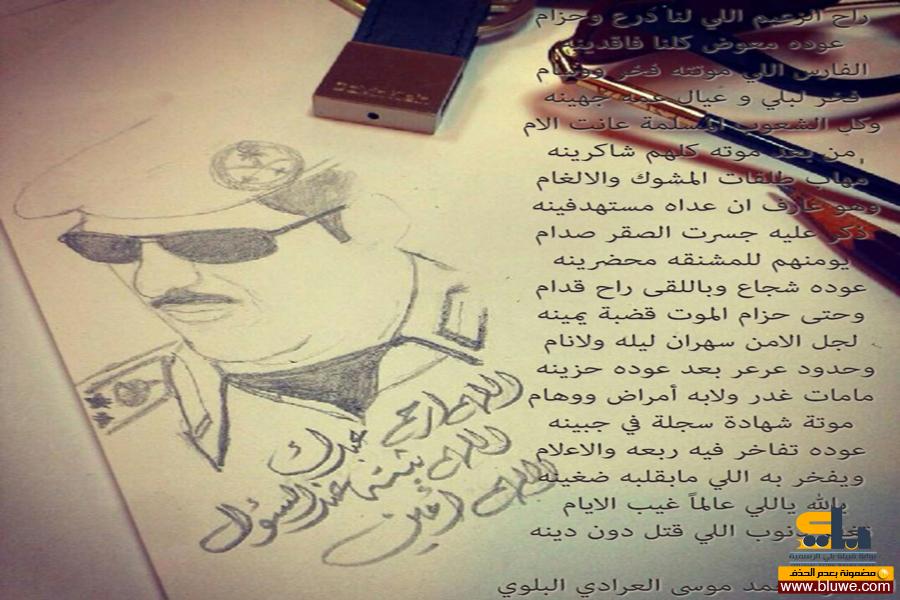 راح الزعيم اللي لنا درع وحزام
عوده معوض كلنا فاقدينه
الفارس اللي موتته فخر ووسام
فخر لبلي و عيال عمه جهينه
وكل الشعوب المسلمة عانت الام
من بعد موته كلهم شاكرينه
مهاب طلقات المشوك والالغام
وهو عارف ان عداه مستهدفينه
ذكر عليه جسرت الصقر صدام
يومنهم للمشنقه محضرينه
عوده شجاع وباللقى راح قدام
وحتى حزام الموت قضبة يمينه
لجل الامن سهران ليله ولانام
وحدود عرعر بعد عوده حزينه
مامات غدر ولابه أمراض ووهام
موتة شهادة سجلة في جبينه
عوده تفاخر فيه ربعه والاعلام
ويفخر به اللي مابقلبه ضغينه
بالله ياللي عالماً غيب الايام
ذنوب اللي قتل دون دينه
موسى العرادي البلوي
اللهم ارحم عبدك
اللهم ثبته عند السؤال
اللهم آمين
بوابة قبيلة بلي الرسمية
مضمونة بعدم الحذف
www.bluwe.com